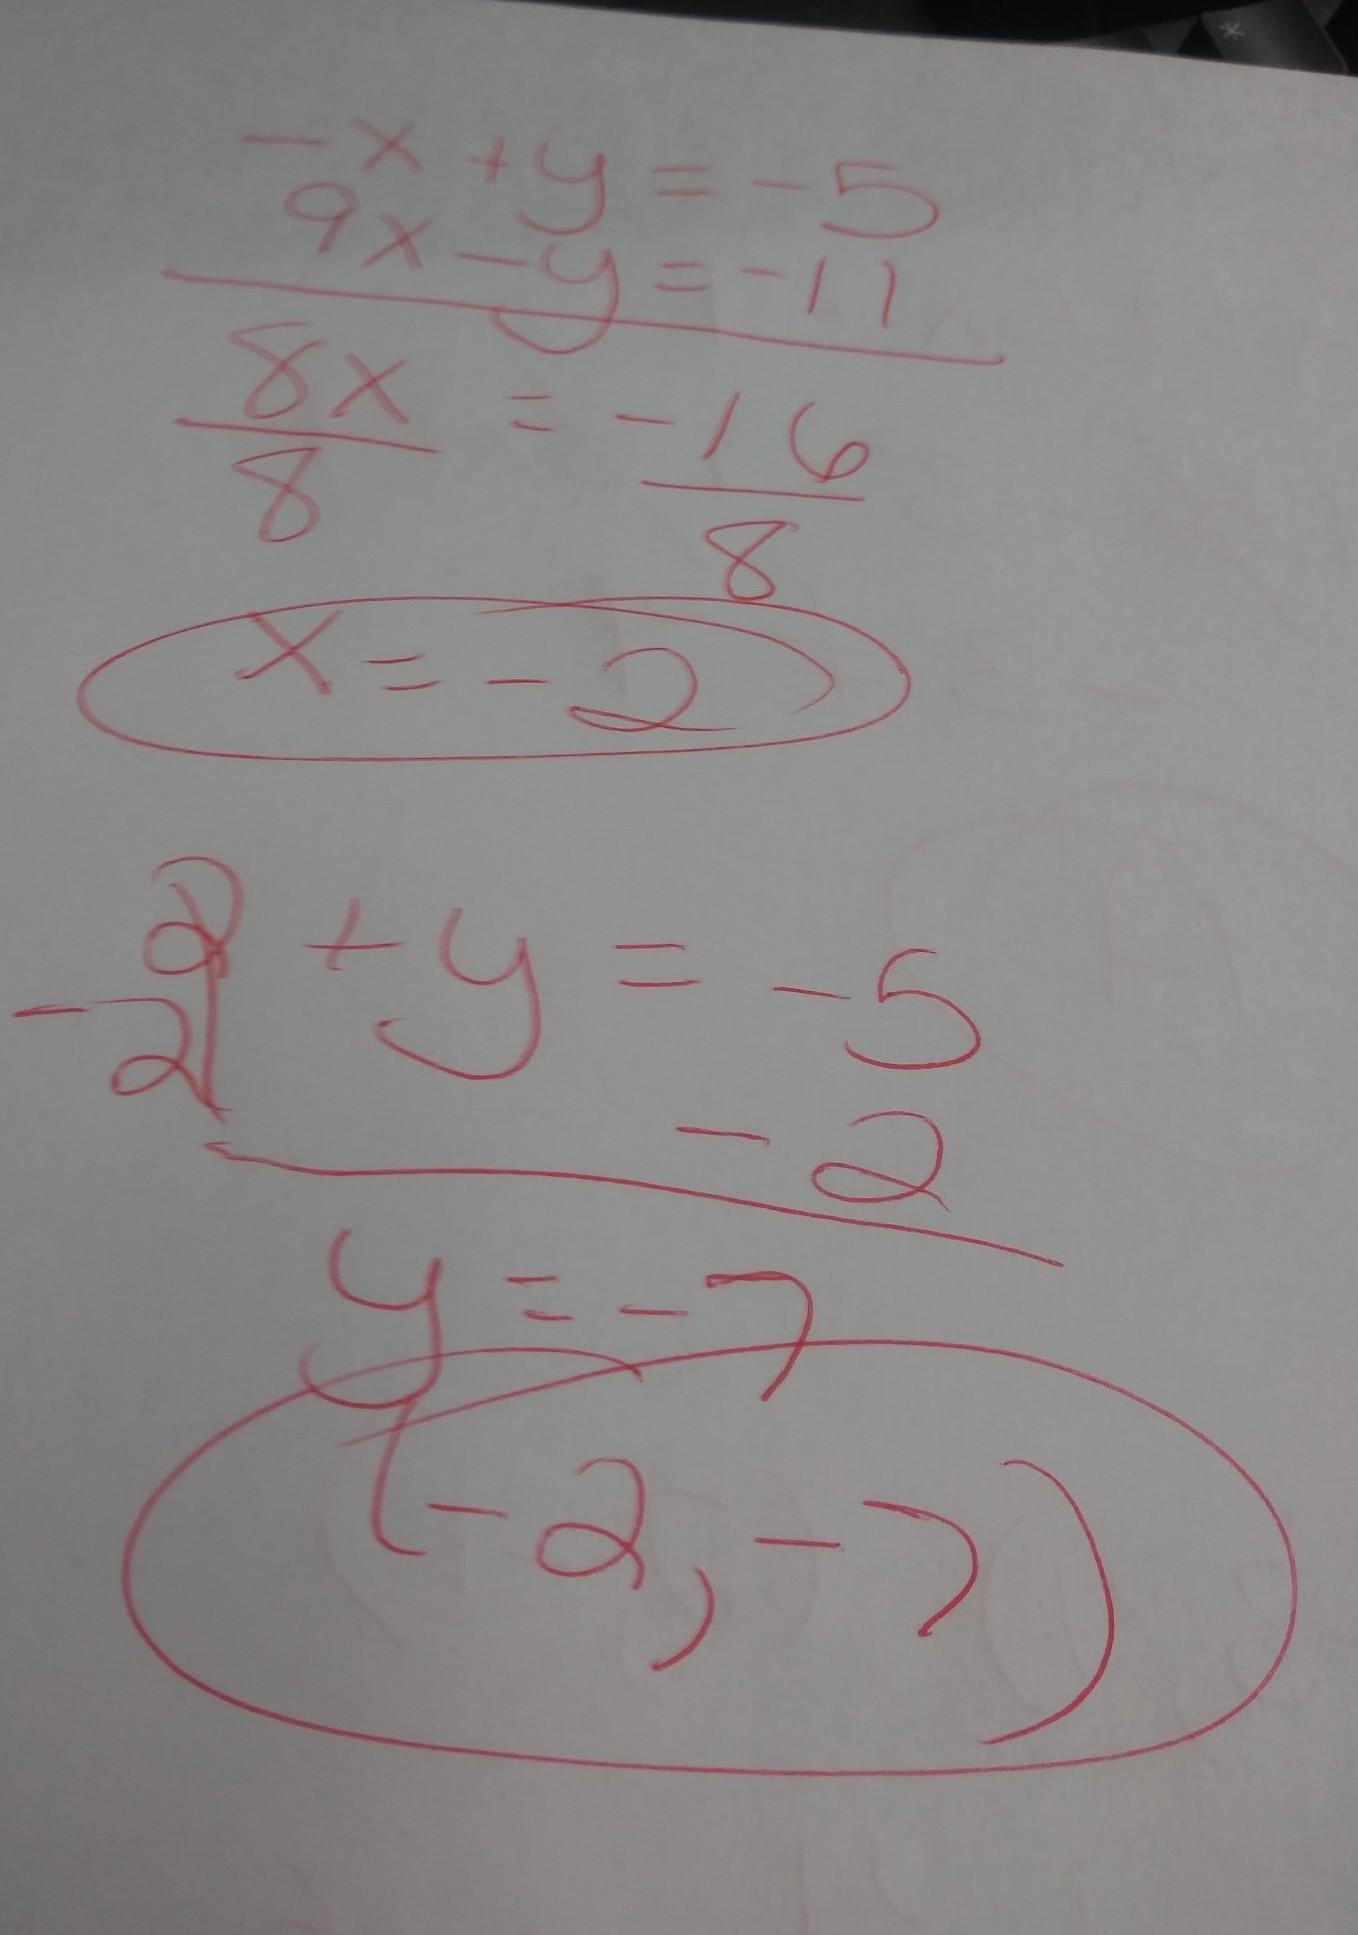 -x + y = -5
9x - y = -11
8x = -16
8 8
x = -2
2 + y = -5
-2 -2
y = -7
(-2, -7)